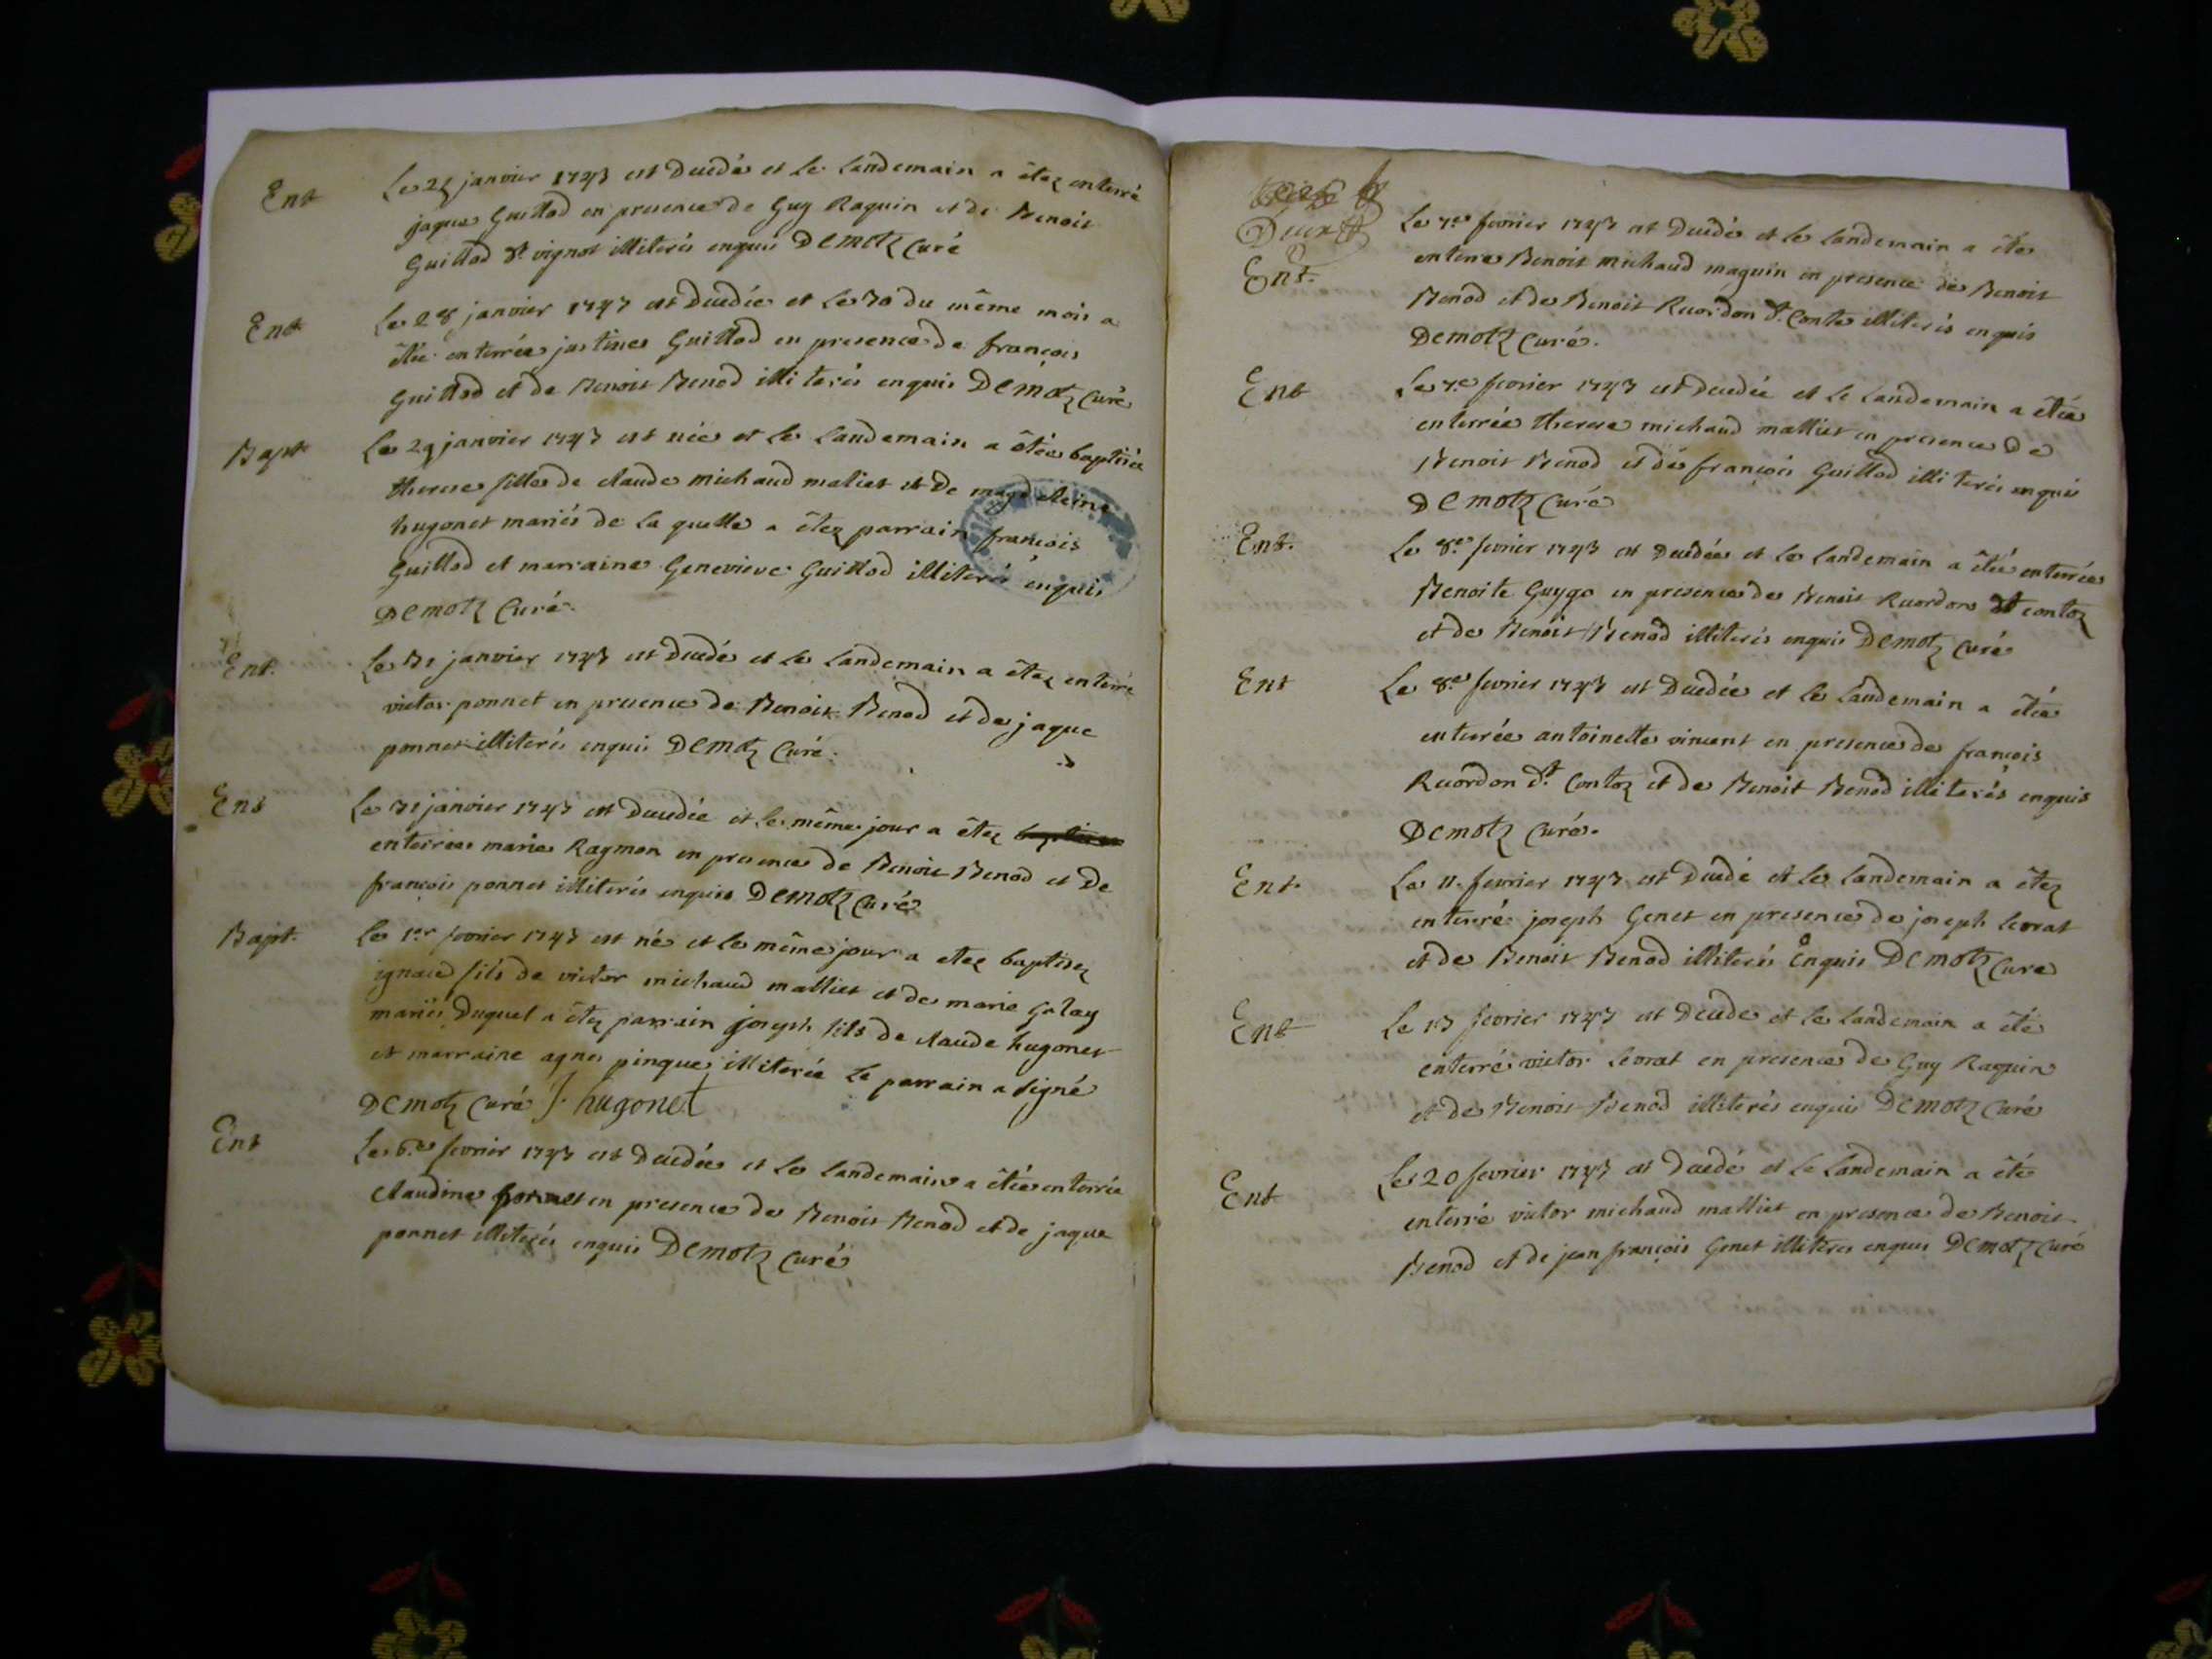 Ent Le 25 janvier 1743 est decedé et le landemain a êtez enterré
jaque Guillod en presence de Guy Raquin et de Benoit
Guillod dt. vignot illiterés enquis Demotz Curé
Ent Le 28 janvier 1743 est decedée et le 30 du même mois a
êtée enterrée justine Guillod en presence de françois
Guillod et de Benoit Benod illiterés enquis Demotz Curé
Bapt Le 29 janvier 1743 est née et le landemain a êtée baptisée
therese fille de claude michaud maliet et de magdeleine
hugonet mariés de la quelle a êtez parrain françois
Guillod et marraine Genevieve Guillod illiterés enquis
Demotz Curé.
Ent. Le 31 janvier 1743 est decedé et le landemain a êtez enterré
victor ponnet en presence de Benoit Benod et de jaque
ponnet illiterés enquis Demotz Curé.
Ent Le 31 janvier 1743 est decedée et le même jour a êtez
enterrée marie Raymon en presence de Benoit Benod et de
françois ponnet illiterés enquis Demotz Curé
Bapt. Le 1er fevrier 1743 est né et le même jour a etez baptisez
ignace fils de victor michaud malliet et de marie Galay
mariés duquel a êtez parrain joseph fils de claude hugonet
et marraine agnes pinque illiterée le parrain a signé
Demotz Curé J. hugonet
Ent Le 6.e fevrier 1743 est decedée et le landemain a êtée enterrée
claudine ponnet en presence de Benoit Benod et de jaque
ponnet illiterés enquis Demotz Curé
Ent. Le 7.e fevrier 1743 est decedé et le landemain a été
enterré Benoit michaud maguin en presence de Benoit
Benod et de Benoit Ruordon dt. Contoz illiterés enquis
Demotz Curé.
Ent Le 7.e fevrier 1743 est decedée et le landemain a êtée
enterrée therese michaud malliet en presence de
Benoit Benod et de françois Guillod illiterés enquis
Demotz Curé
Ent. Le 8.e fevrier 1743 est decedée et le landemain a êtée enterrée
Benoite Guygo en presence de Benoit Ruordon dt contoz
et de Benoit Benod illiterés enquis Demotz Curé
Ent Le 8.e fevrier 1743 est decedée et le landemain a êtée
enterrée antoinette vincent en presence de françois
Ruordon dt. Contoz et de Benoit Benod illiterés enquis
Demotz Curé.
Ent. Le 11. fevrier 1743 est decedé et le landemain a êtez
enterré joseph Genet en presence de joseph levrat
et de Benoit Benod illiterés Enquis Demotz Cure
Ent Le 13 fevrier 1743 est decede et le landemain a êté
enterré victor levrat en presence de Guy Raquin
et de Benoit Benod illiterés enquis Demotz Curé
Ent Le 20 fevrier 1743 est decedé et le landemain a êté
enterré victor michaud malliet en presence de Benoit
Benod et de jean françois Genet illiteres enquis Demotz Curé